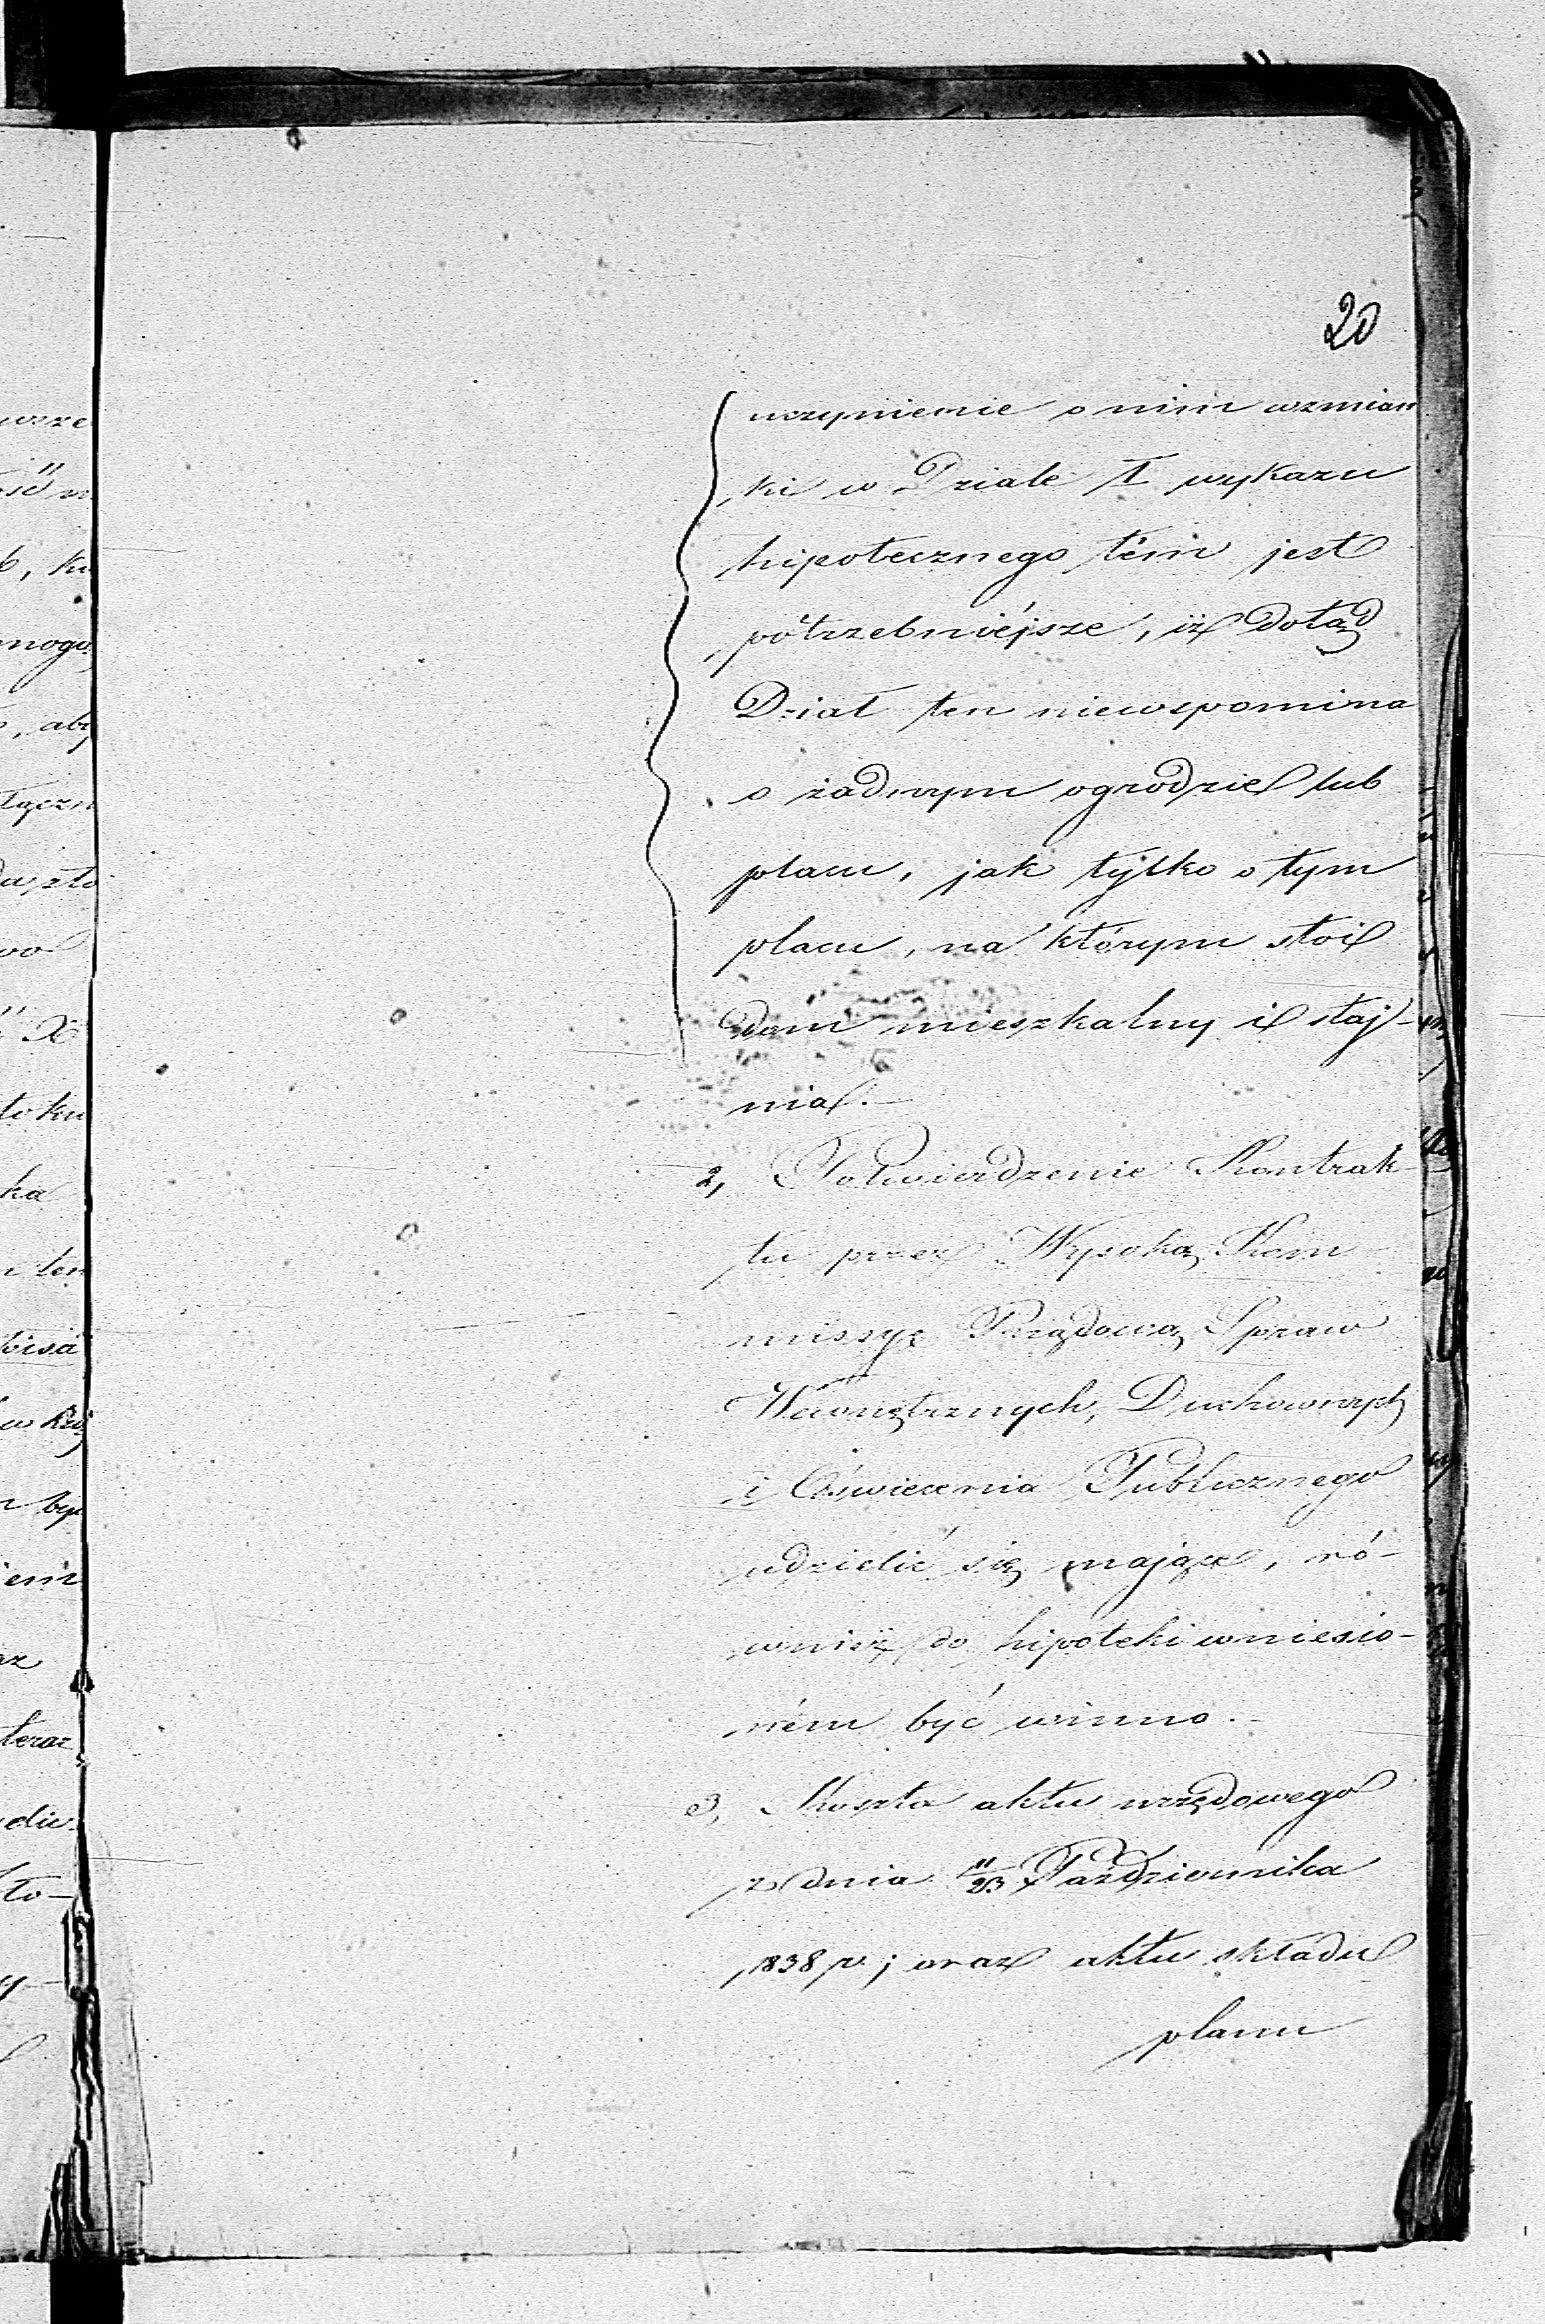 20
uczynienie o nim wzmian
ki w Dziale I wykazu
hipotecznego tém jest
potrzebniéjsze, iż dotąd
Dział ten niewspomina
o żadnym ogrodzie lub
placu, jak tylko o tym
placu, na którym stoi
dom mieszkalny i staj-
nia.—
2, Potwierdzenie Kontrak-
tu przez Wysoką Kom-
missyę Rządową Spraw
Wewnętrznych, Duchownych
i Oświecenia Publicznego
udzielić się mające, ró-
wnież do hipoteki wniesio-
ném być winno.—
3, Koszta aktu urzędowego
z dnia 11/23 Października
1838 r.; oraz aktu składu
planu